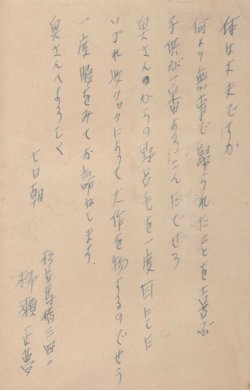 体は大丈夫ですか
何より無事で帰られたことを喜ぶ
子供が一番よろこんだでせう
奥さんからの 一度 目にした
いづれ によつて大作を物するのでせう
一度暇をみてお訪ねします
奥さんへよろしく
七日朝
杉並馬橋三四
柳瀬正夢